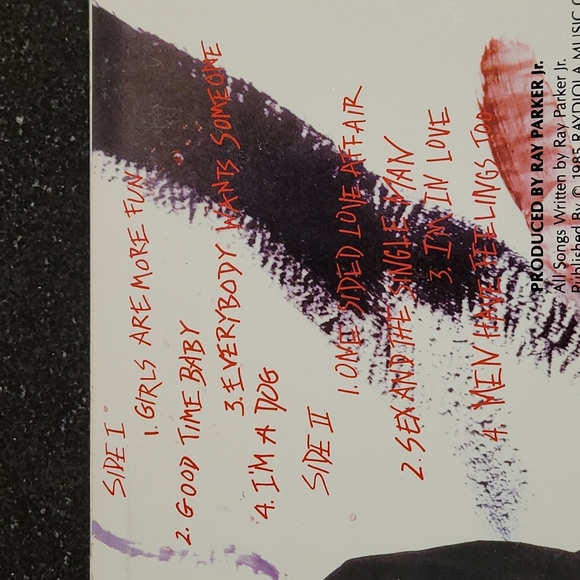 SIDE I
1. GIRLS ARE MORE FUN
2. GOOD TIME BABY
3. EVERYBODY WANTS SOMEONE
4. I'M A DOG
SIDE II
1. ONE SIDED LOVE AFFAIR
2. SEX AND THE SINGLE MAN
3. I'M IN LOVE
4. MEN HAVE FEELINGS TOO
PRODUCED BY RAY PARKER Jr.
All Songs Written by Ray Parker Jr.
Published By © 1985 RAYDIOLA MUSIC